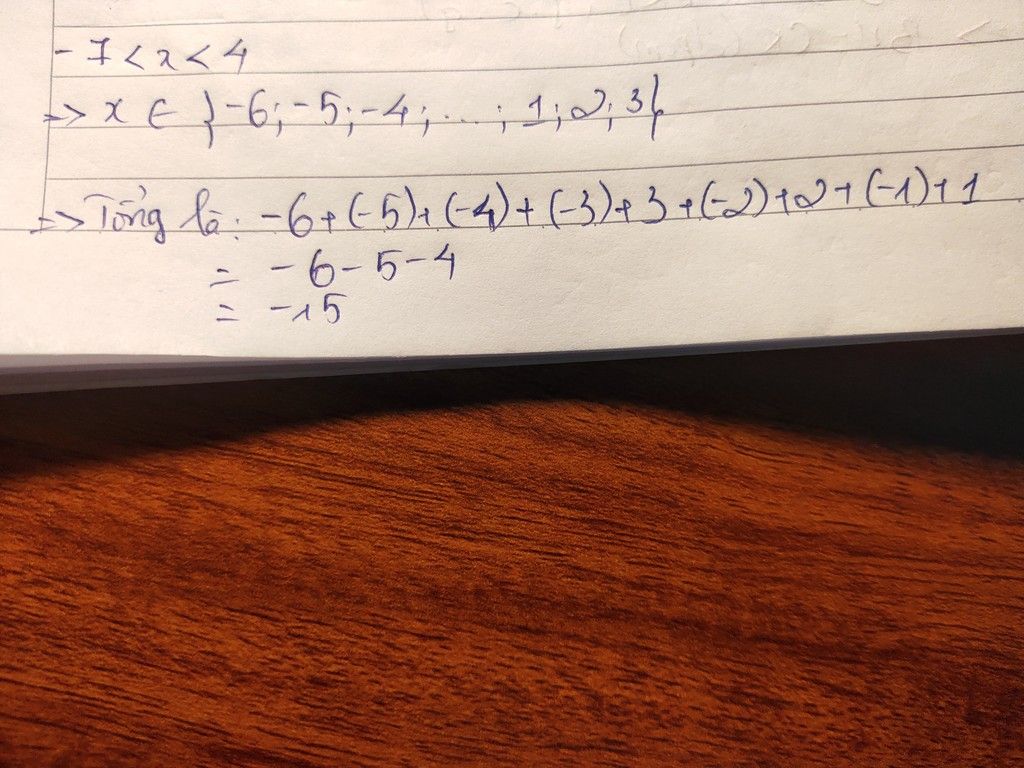 -7 < x < 4
=> x ∈ }-6; -5; -4; ...; 1; 2; 3{
=> Tổng là: -6 + (-5) + (-4) + (-3) + 3 + (-2) + 2 + (-1) + 1
= -6 - 5 - 4
= -15